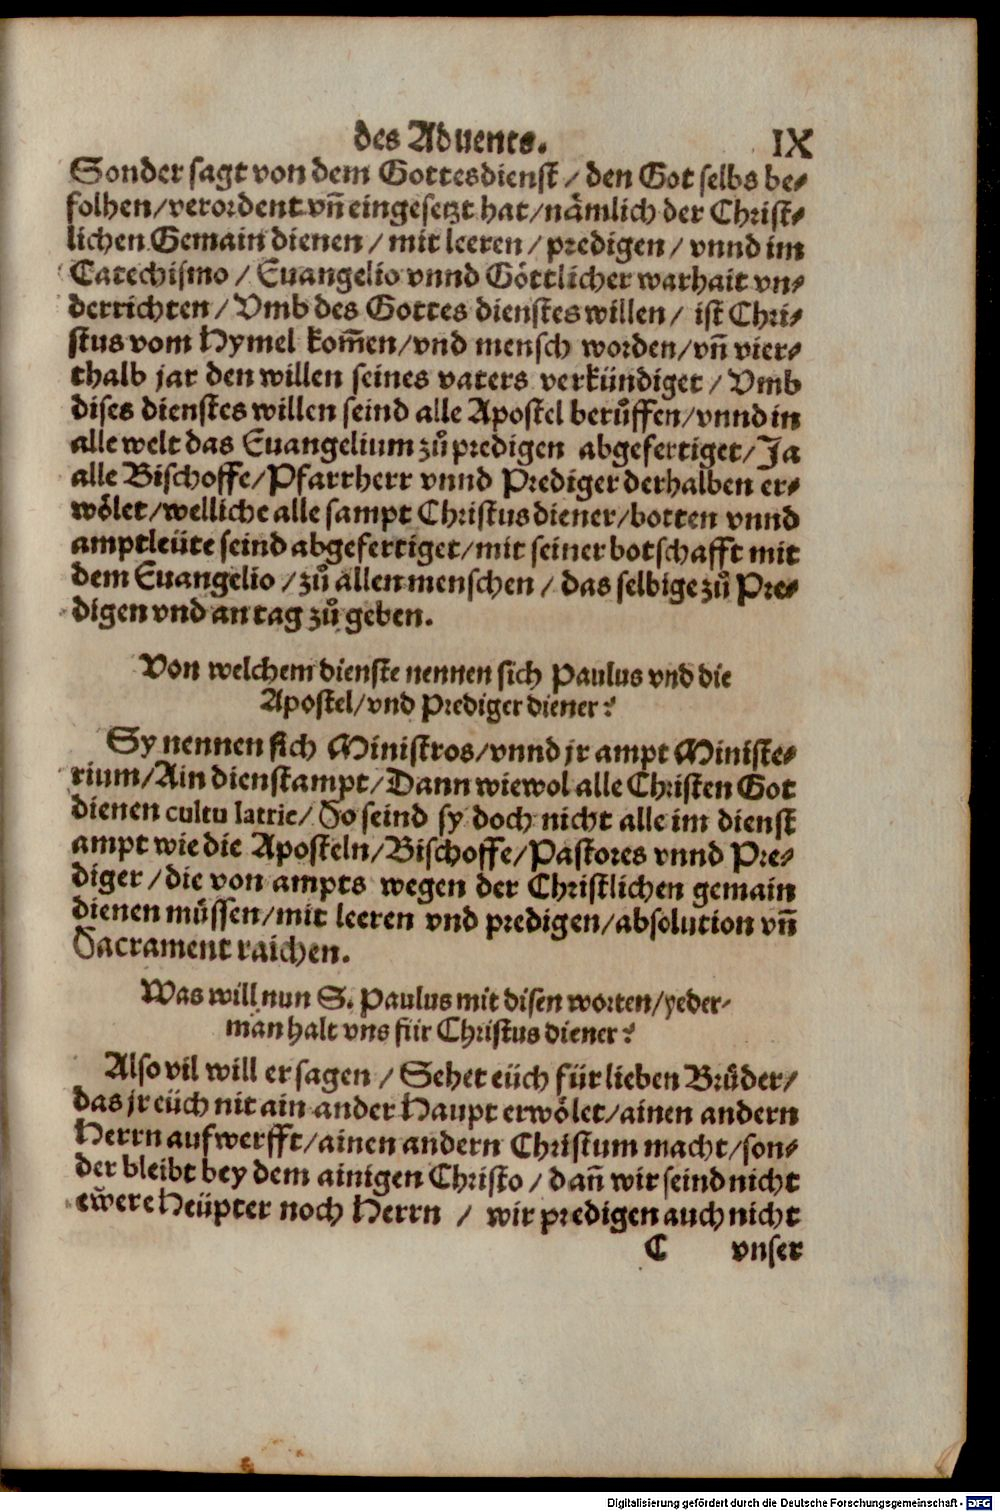 des Aduents. IX
Sonder sagt von dem Gottesdienst / den Got selbs be⸗
folhen/verordent vñ eingesetzt hat/nämlich der Christ⸗
lichen Gemain dienen / mit leeren / predigen / vnnd im
Catechismo / Euangelio vnnd Göttlicher warhait vn⸗
derrichten / Vmb des Gottes dienstes willen / ist Chri⸗
stus vom Hymel kom̃en/vnd mensch worden/vñ vier⸗
thalb jar den willen seines vaters verkündiget / Vmb
dises dienstes willen seind alle Apostel berůffen/vnnd in
alle welt das Euangelium zů predigen abgefertiget/Ja
alle Bischoffe/Pfarrherr vnnd Prediger derhalben er⸗
wölet/welliche alle sampt Christus diener/botten vnnd
amptleüte seind abgefertiget/mit seiner botschafft mit
dem Euangelio / zů allen menschen / das selbige zů Pre⸗
digen vnd an tag zů geben.
Von welchem dienste nennen sich Paulus vnd die
Apostel/vnd Prediger diener?
Sy nennen sich Ministros/vnnd jr ampt Ministe⸗
rium/Ain dienstampt/Dann wiewol alle Christen Got
dienen cultu latrie/ So seind sy doch nicht alle im dienst
ampt wie die Aposteln/Bischoffe/Pastores vnnd Pre⸗
diger / die von ampts wegen der Christlichen gemain
dienen müssen/mit leeren vnd predigen/absolution vñ
Sacrament raichen.
Was will nun S. Paulus mit disen worten/yeder⸗
man halt vns für Christus diener?
Also vil will er sagen / Sehet eüch für lieben Brůder/
das jr eüch nit ain ander Haupt erwölet/ainen andern
Herrn aufwerfft/ainen andern Christum macht/son⸗
der bleibt bey dem ainigen Christo / dañ wir seind nicht
ewere Heüpter noch Herrn / wir predigen auch nicht
C vnser
Digitalisierung gefördert durch die Deutsche Forschungsgemeinschaft - DFG